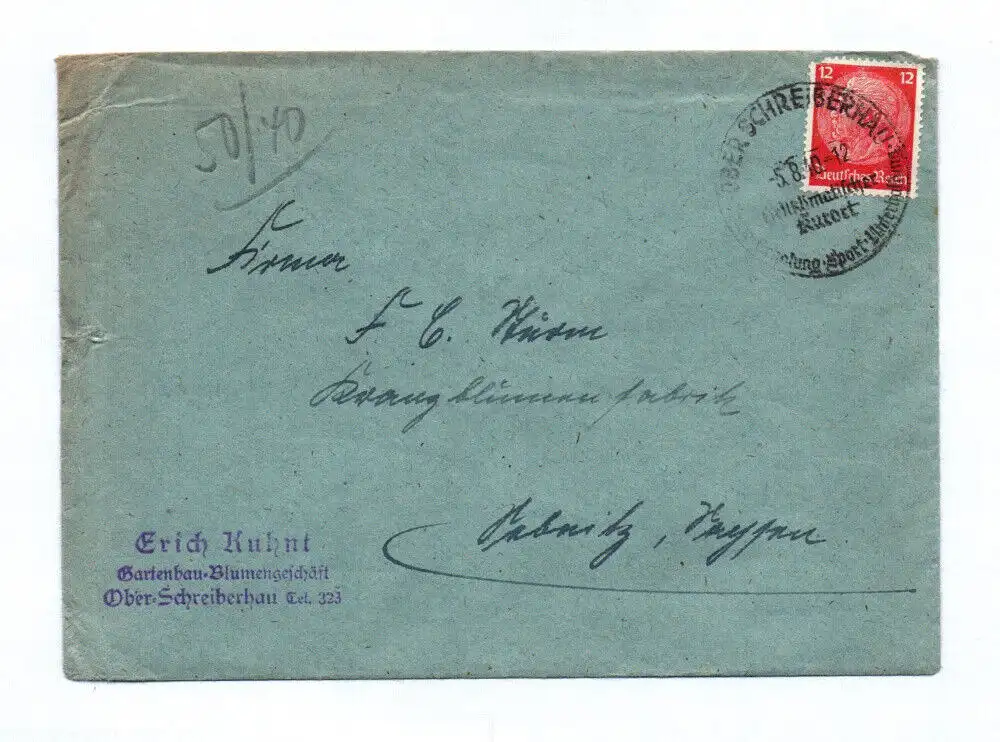 50/40
12 12
Deutsches Reich
OBER SCHREIBERHAU
-5.8.40.-12
Kurort
Sport
Firma
F C. Sturm
Kranzblumenfabrik
Sebnitz, Sachsen
Erich Kuhnt
Gartenbau-Blumengeschäft
Ober-Schreiberhau Tel. 323